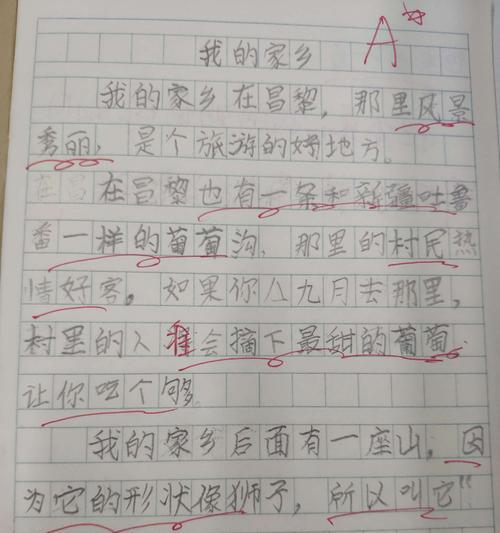 A
我的家乡
我的家乡在昌黎，那里风景
秀丽，是个旅游的好地方。
在昌黎也有一条和新疆吐鲁
番一样的葡萄沟，那里的村民热
情好客。如果你八九月去那里，
村里的人准会摘下最甜的葡萄，
让你吃个够。
我的家乡后面有一座山，因
为它的形状像狮子，所以叫它“